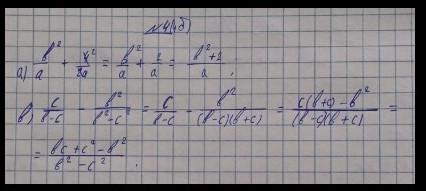 №4(аб)
а) b²/a + 4²/2a = b²/a + 2/a = (b²+2)/a ;
в) c/(b-c) - b²/(b²-c²) = c/(b-c) - b²/((b-c)(b+c)) = (c(b+c)-b²)/((b-c)(b+c)) =
= (bc+c²-b²)/(b²-c²) .